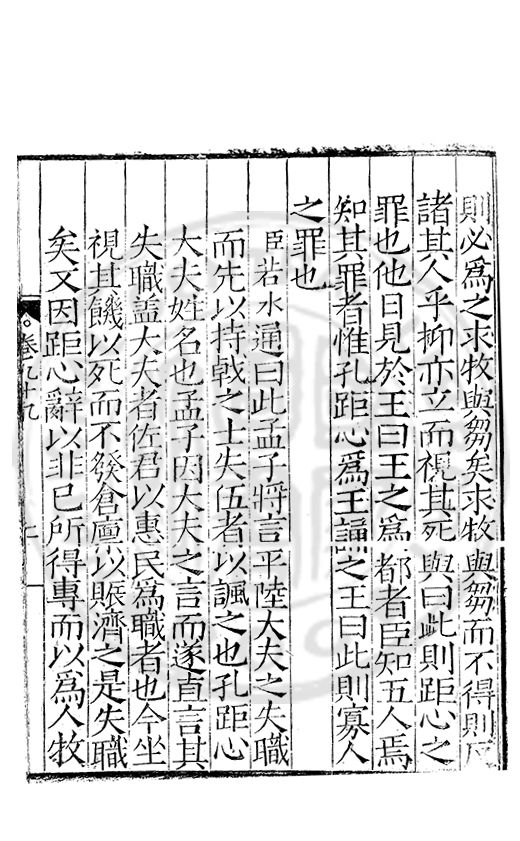 則必爲之求牧與芻矣求牧與芻而不得則反
諸其人乎抑亦立而視其死與曰此則距心之
罪也他日見於王曰王之爲都者臣知五人焉
知其罪者惟孔距心爲王誦之王曰此則寡人
之罪也
臣若水通曰此孟子將言平陸大夫之失職
而先以持戟之士失伍者以諷之也孔距心
大夫姓名也孟子因大夫之言而遂直言其
失職盖大夫者佐君以惠民爲職者也今坐
視其饑以死而不發倉廪以賑濟之是失職
矣又因距心辭以非已所得專而以爲人牧
卷九十九